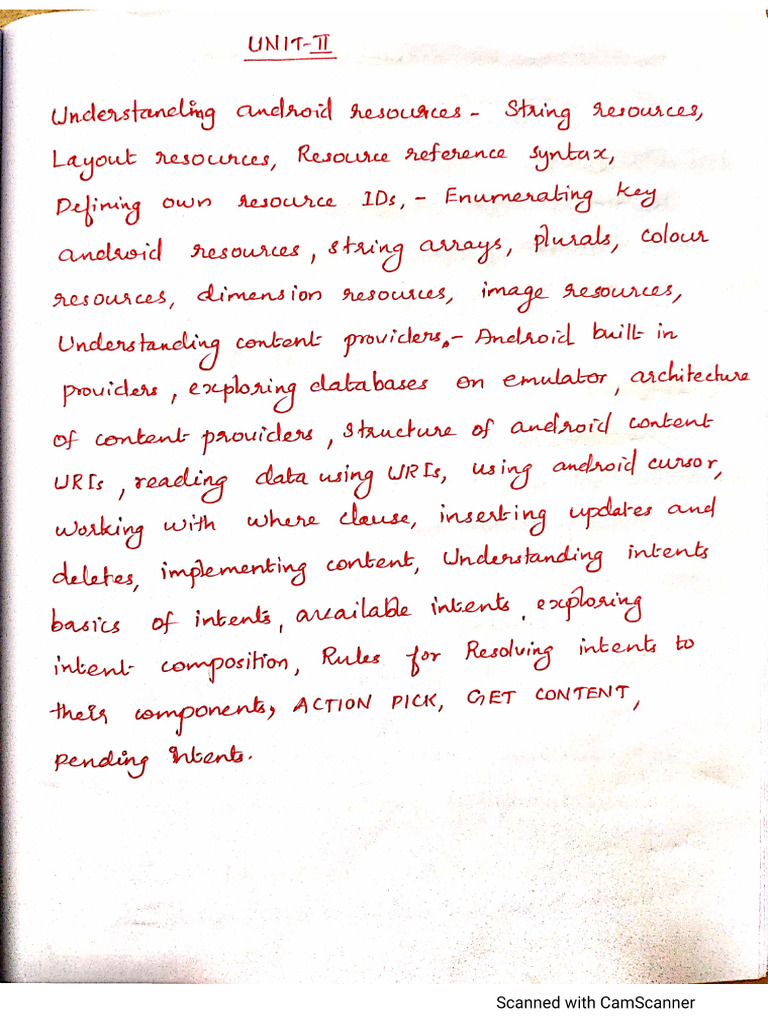 UNIT-II
Understanding android resources - String resources,
Layout resources, Resource reference syntax,
Defining own resource IDs, - Enumerating key
android resources, string arrays, plurals, colour
resources, dimension resources, image resources,
Understanding content providers, - Android built in
providers, exploring databases on emulator, architecture
of content providers, structure of android content
URIs, reading data using URIs, using android cursor,
working with where clause, inserting updates and
deletes, implementing content, Understanding intents
basics of intents, available intents, exploring
intent composition, Rules for Resolving intents to
their components, ACTION PICK, GET CONTENT,
pending intents.
Scanned with CamScanner